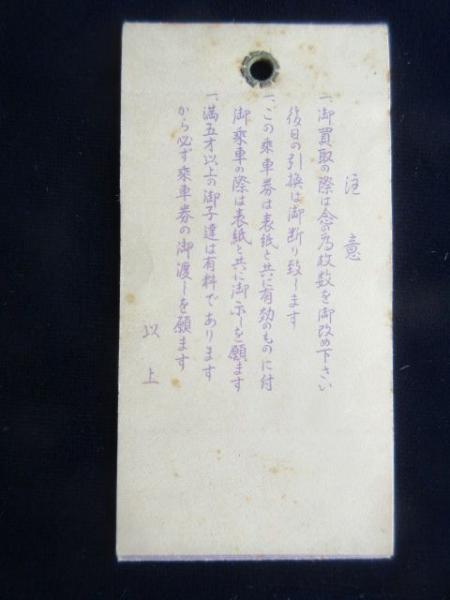 注意
一、御買取の際は念の為枚数を御改め下さい
後日の引換は御断り致します
一、この乗車券は表紙と共に有効のものに付
御乗車の際は表紙と共に御示しを願ます
一、満五才以上の御子達は有料であります
から必ず乗車券の御渡しを願ます
以上